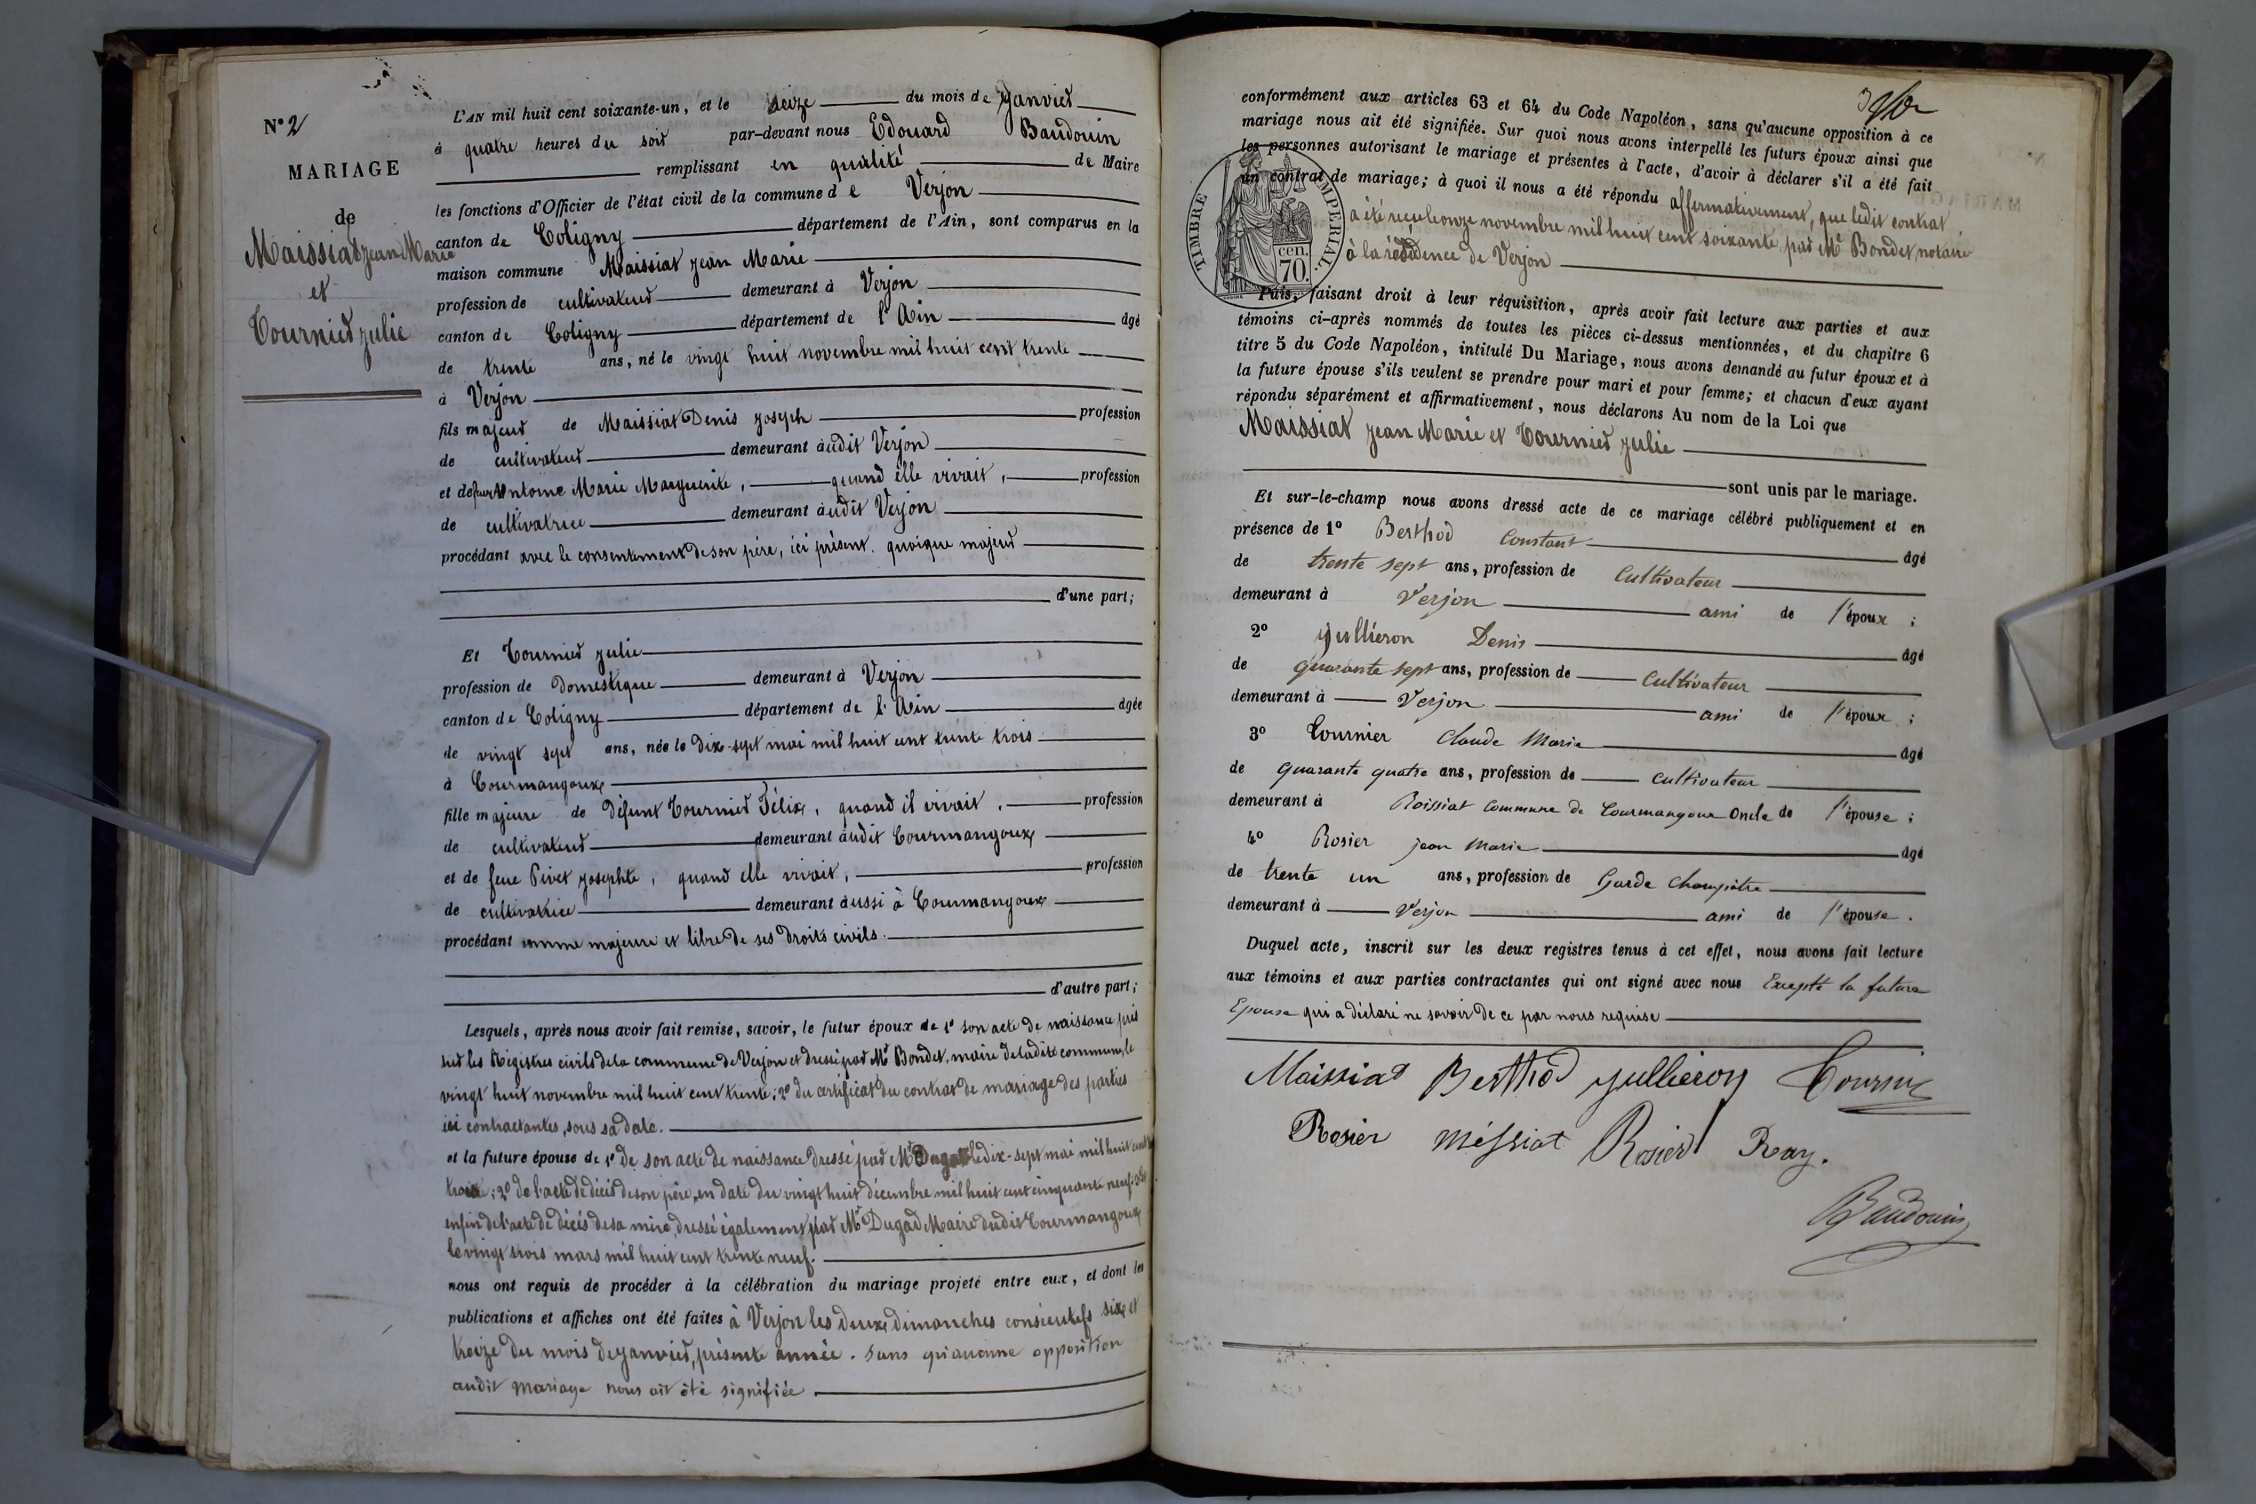 N° 2
MARIAGE
de
Maissiat Jean Marie
et
Tournier Julie
L'AN mil huit cent soixante-un, et le seize du mois de Janvier
à quatre heures du soir par-devant nous Edouard Baudouin
remplissant en qualité de Maire
les fonctions d'Officier de l'état civil de la commune de Verjon
canton de Coligny département de l'Ain, sont comparus en la
maison commune Maissiat Jean Marie
profession de cultivateur demeurant à Verjon
canton de Coligny département de l'Ain âgé
de trente ans, né le vingt huit novembre mil huit cent trente
à Verjon
fils majeur de Maissiat Denis Joseph profession
de cultivateur demeurant audit Verjon
et de Antoine Marie Marguerite, quand elle vivait, profession
de cultivatrice demeurant audit Verjon
procédant avec le consentement de son père, ici présent. quoique majeur
d'une part;
Et Tournier Julie
profession de domestique demeurant à Verjon
canton de Coligny département de l'Ain âgée
de vingt sept ans, née le dix-sept mai mil huit cent trente trois
à Courmangoux
fille majeure de défunt Tournier Félix, quand il vivait, profession
de cultivateur demeurant audit Courmangoux
et de feue Pivet Josephte, quand elle vivait, profession
de cultivatrice demeurant aussi à Courmangoux
procédant comme majeure et libre de ses droits civils.
d'autre part;
Lesquels, après nous avoir fait remise, savoir, le futur époux de 1° son acte de naissance pris
sur les Régistres civils de la commune de Verjon et dressé par Mr Bondet, maire de ladite commune, le
vingt huit novembre mil huit cent trente; 2° du certificat du contrat de mariage des parties
ici contractantes, sous sa date.
et la future épouse de 1° de son acte de naissance dressé par Mr Dugad le dix-sept mai mil huit cent
trois; 2° de l'acte de décès de son père, en date du vingt huit décembre mil huit cent cinquante neuf;
enfin de l'acte de décès de sa mère, dressé également par Mr Dugad Maire dudit Courmangoux
le vingt trois mars mil huit cent trente neuf.
nous ont requis de procéder à la célébration du mariage projeté entre eux, et dont les
publications et affiches ont été faites à Verjon les deux dimanches consécutifs six et
treize du mois de janvier, présente année. sans qu'aucune opposition
audit mariage nous ait été signifiée.
conformément aux articles 63 et 64 du Code Napoléon, sans qu'aucune opposition à ce
mariage nous ait été signifiée. Sur quoi nous avons interpellé les futurs époux ainsi que
les personnes autorisant le mariage et présentes à l'acte, d'avoir à déclarer s'il a été fait
un contrat de mariage; à quoi il nous a été répondu affirmativement, que ledit contrat
a été reçu le onze novembre mil huit cent soixante par Me Bondet, notaire
à la résidence de Verjon
TIMBRE IMPERIAL.
cen.
70.
Puis, faisant droit à leur réquisition, après avoir fait lecture aux parties et aux
témoins ci-après nommés de toutes les pièces ci-dessus mentionnées, et du chapitre 6
titre 5 du Code Napoléon, intitulé Du Mariage, nous avons demandé au futur époux et à
la future épouse s'ils veulent se prendre pour mari et pour femme; et chacun d'eux ayant
répondu séparément et affirmativement, nous déclarons Au nom de la Loi que
Maissiat Jean Marie et Tournier Julie
sont unis par le mariage.
Et sur-le-champ nous avons dressé acte de ce mariage célébré publiquement et en
présence de 1° Berthod Constant âgé
de trente sept ans, profession de Cultivateur
demeurant à Verjon ami de l'époux;
2° Jullieron Denis âgé
de quarante sept ans, profession de Cultivateur
demeurant à Verjon ami de l'époux;
3° Tournier Claude Marie âgé
de quarante quatre ans, profession de cultivateur
demeurant à Roissiat commune de Courmangoux Oncle de l'épouse;
4° Rosier Jean Marie âgé
de trente un ans, profession de Garde Champêtre
demeurant à Verjon ami de l'épouse.
Duquel acte, inscrit sur les deux registres tenus à cet effet, nous avons fait lecture
aux témoins et aux parties contractantes qui ont signé avec nous Excepté la future
Epouse qui a déclaré ne savoir de ce par nous requise
Maissiat Berthod Jullieron Tournier
Rosier Méssiat Rosier Ray.
Baudouin